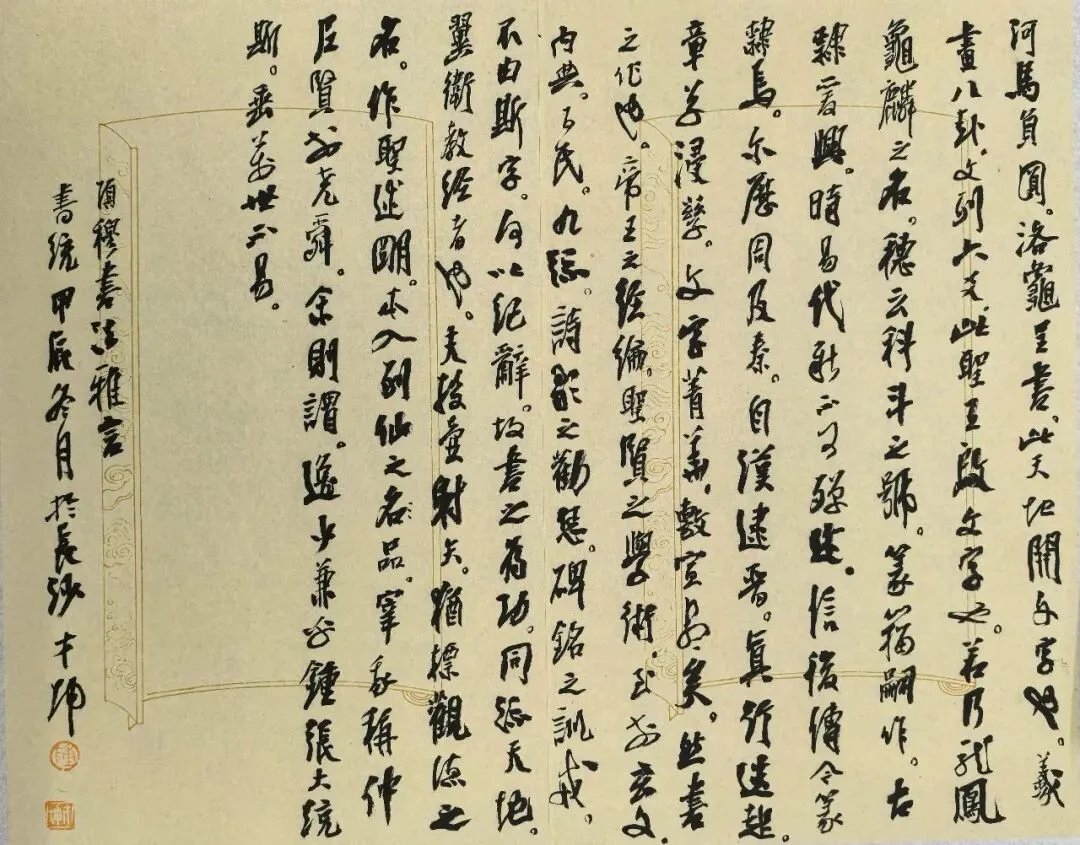 河馬負圓。洛龜呈書。此天地開文字也。羲
畫八卦。文列六爻。此聖王啟文字也。若乃龍鳳
龜麟之名。穗云科斗之號。篆籀嗣作。古
隸爰興。時易代新。不可殫述。信後傳今篆
隸焉。尔歷周及秦。自漢逮晋。真行迭起。
章草浸孳。文字菁華。敷宣盡矣。然書
之作也。帝王之經綸。聖賢之學術。至於玄文
內典。百氏。九流。詩歌之勸懲。碑銘之訓戒。
不由斯字。何以紀辭。故書之為功。同流天地。
翼衛教經者也。夫投壺射矢。猶標觀德之
名。作聖述明。本入列仙之名品。宰我稱仲
尼賢於堯舜。余則謂。逸少兼乎鍾張大統
斯。垂萬世不易。
項穆書法雅言
書統甲辰冬月於長沙